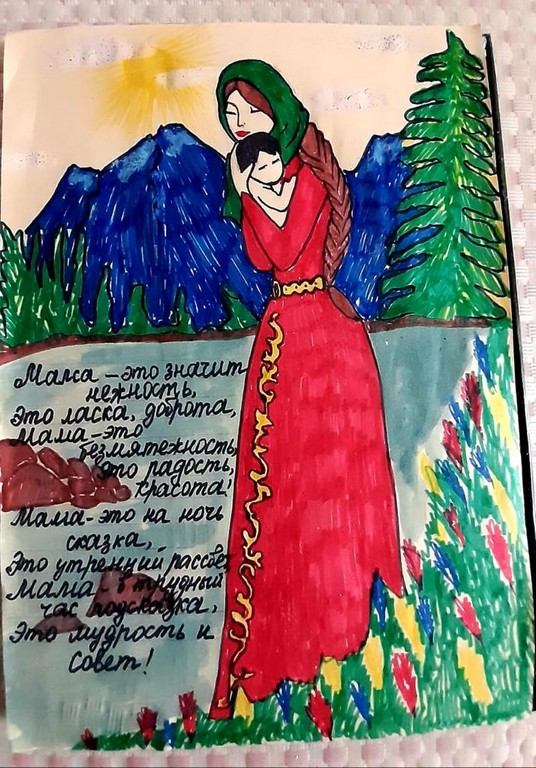 Мама – это значит
нежность,
Это ласка, доброта,
Мама – это
безмятежность,
Это радость,
красота!
Мама – это на ночь
сказка,
Это утренний рассвет,
Мама – в трудный
час подсказка,
Это мудрость и
совет!